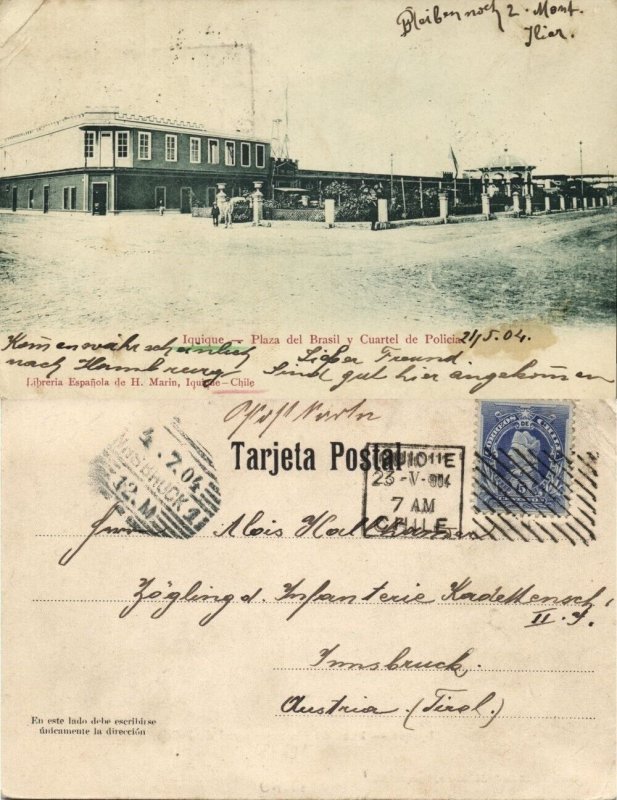 Bleiben noch 2. Mont.
Hier.
Iquique – Plaza del Brasil y Cuartel de Policia
21/5.04.
Komen wahrscheinlich
nach Hamburg
Lieber Freund
Sind gut hier angekomen
Libreria Española de H. Marin, Iquique–Chile
Postkarte
Tarjeta Postal
INNSBRUCK 1
4.7.04
12.M
IQUIQUE
23-V-904
7 AM
CHILE
CORREOS DE CHILE
Alois
Zögling d. Infanterie Kadettensch.
II. J.
Innsbruck.
Austria (Tirol.)
En este lado debe escribirse
únicamente la dirección